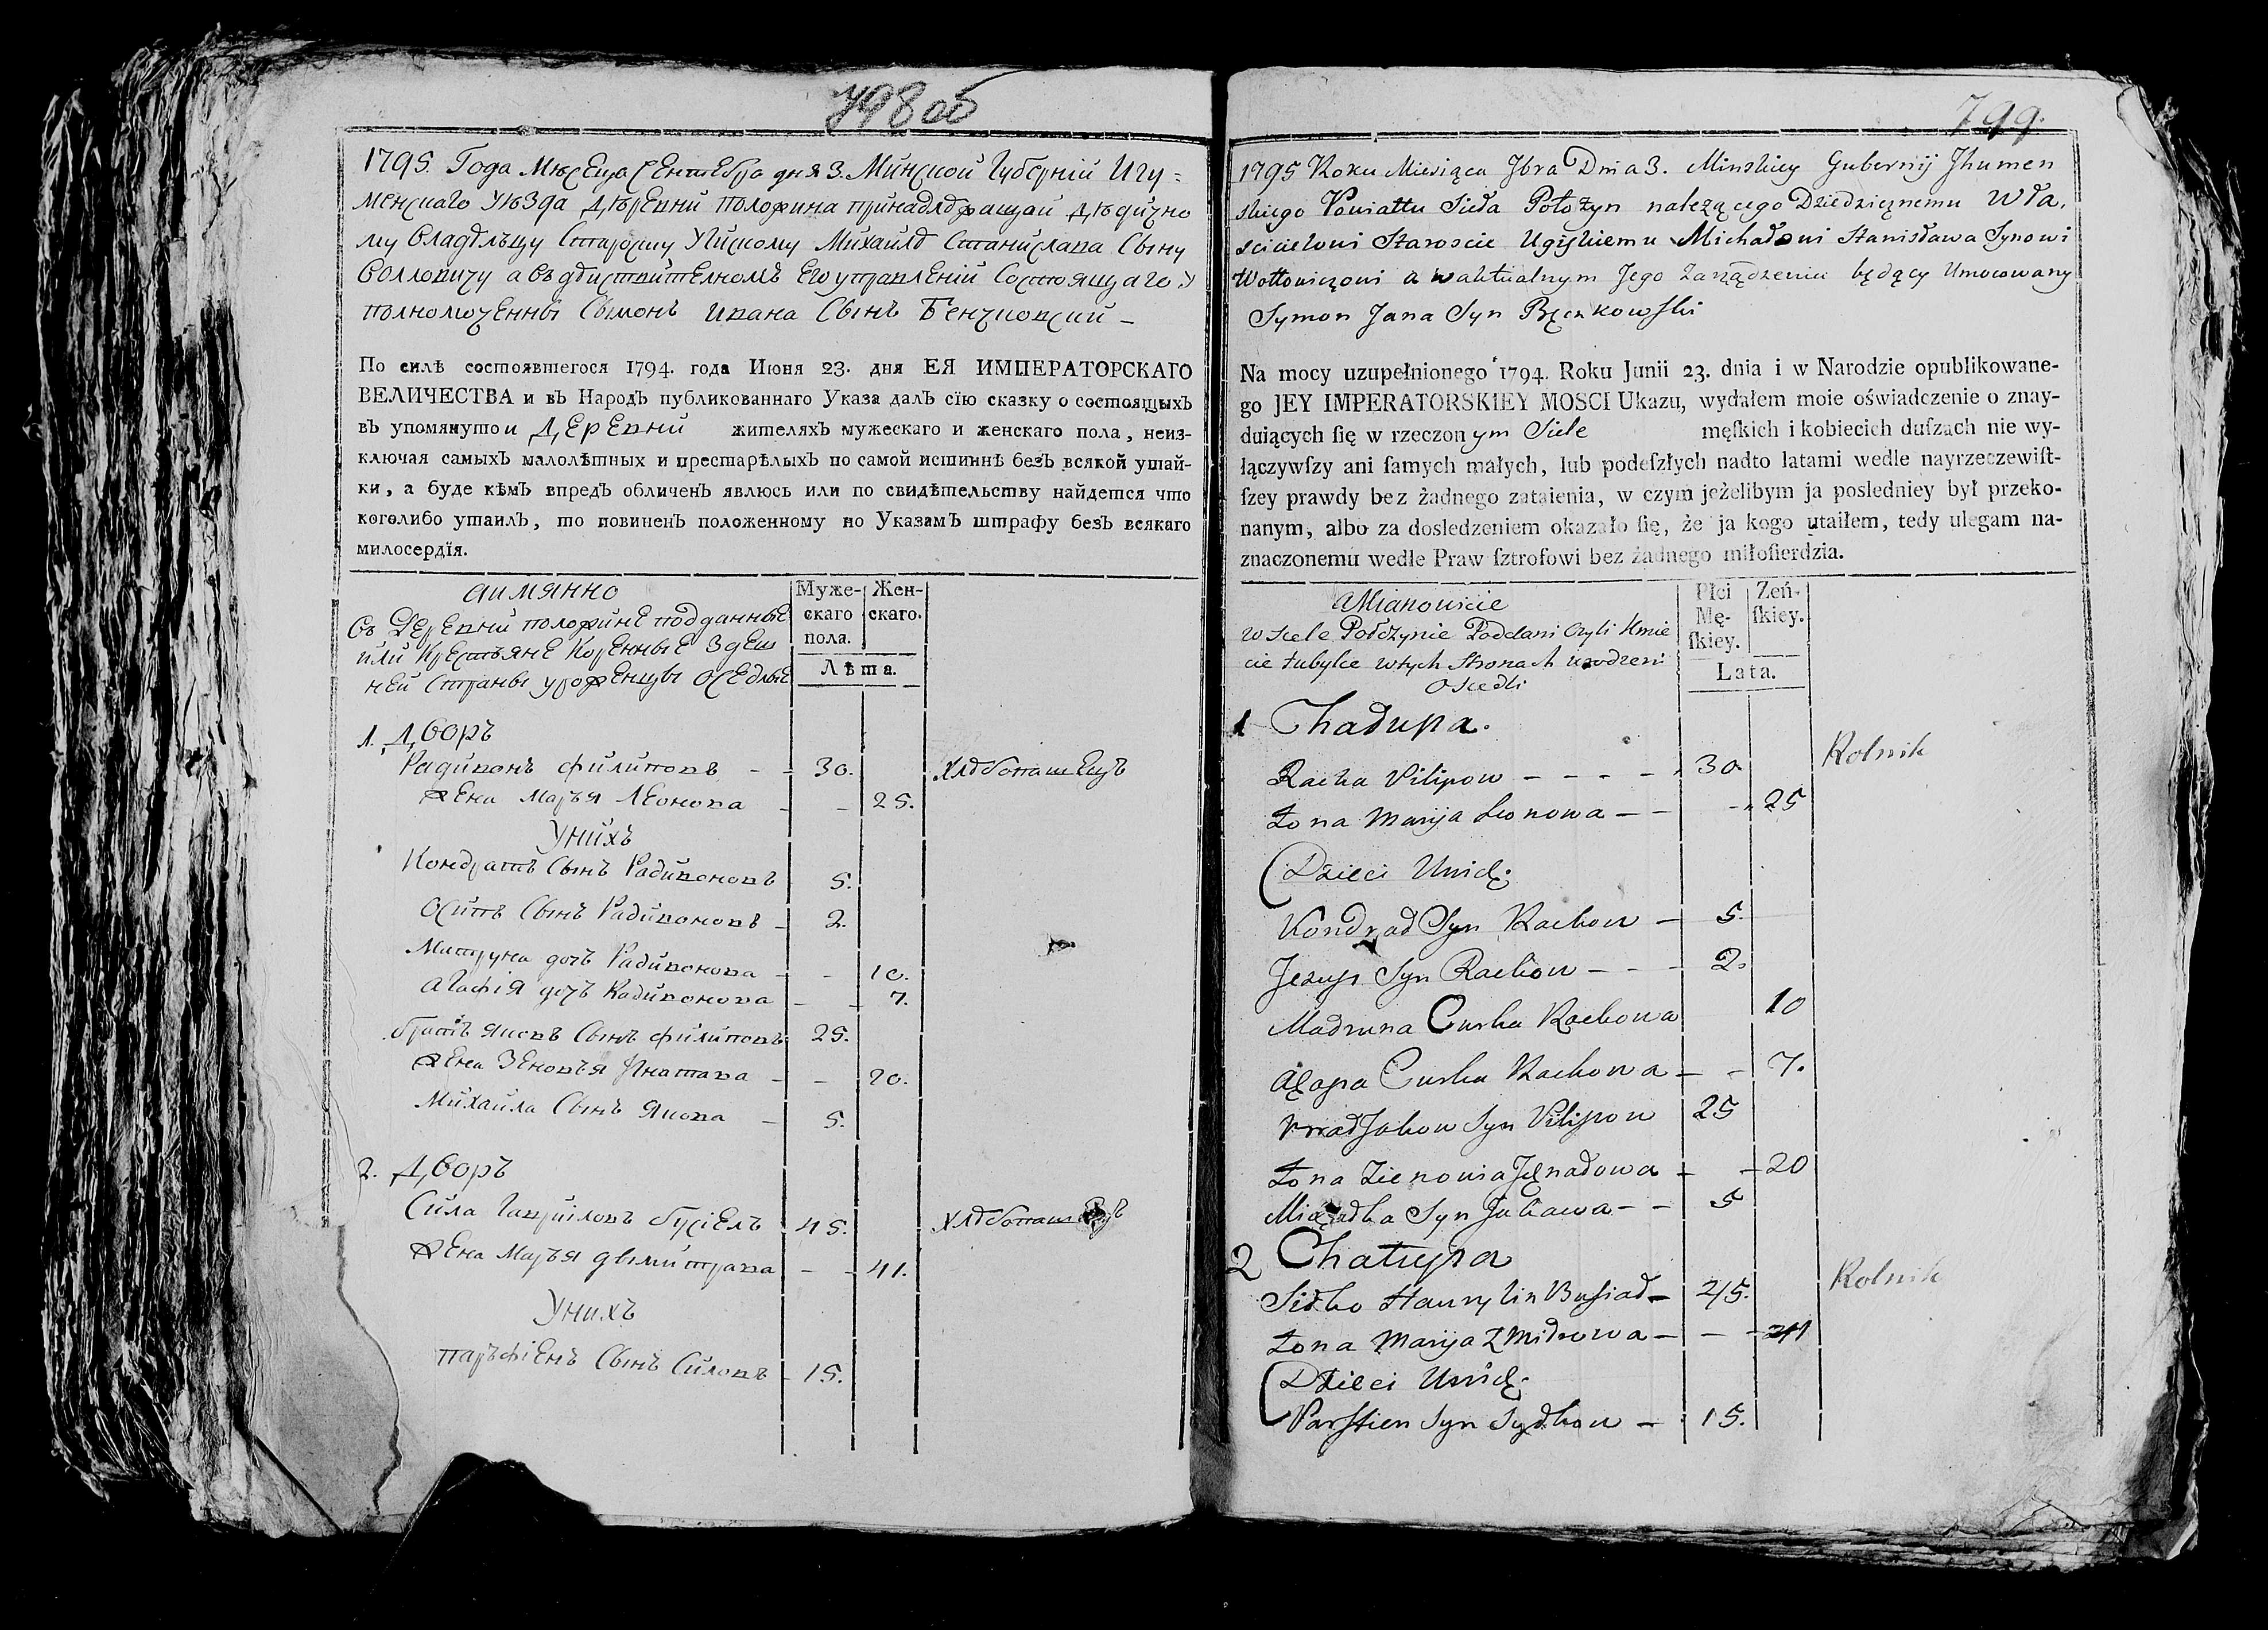 798 об
1795. Года Мѣсеца Сентебра дня 3. Минской Губерній Игу=
менскаго уѣзда дѣревни положина принадлѣжащай дѣдично
му владѣльцу Старосту Угискому Михайлѣ Станислава Сыну
Волловичу а въ дѣиствителномъ его управленій состоящаго
полномоченны Сымонъ Ивана Сынъ Бенчковский –
По силѣ состоявшегося 1794. года Июня 23. дня ЕЯ ИМПЕРАТОРСКАГО
ВЕЛИЧЕСТВА и въ Народъ публикованнаго Указа далъ сїю сказку о состоящыхъ
въ упомянутои Деревни жителяхъ мужескаго и женскаго пола, неиз-
ключая самыхъ малолѣтныхъ и престарѣлыхъ по самой истиннѣ безъ всякой утай-
ки, а буде кѣмъ впредъ обличенъ явлюсь или по свидѣтельству найдется что
коголибо утаилъ, то повиненъ положенному по Указамъ штрафу безъ всякаго
милосердїя.
аимянно
въ Деревни положине подданные
или Крестьяне Коренные Здеш
ней Страны уроженцы оседлые
Муже-
скаго
пола.
Жен-
скаго.
Лѣта.
1. Дворъ
Радивонъ филиповъ – – 30. хлѣбопашецъ
жена Марья Леонова – – 25.
Унихъ
Кондратъ Сынъ Радивоновъ 5.
Осипъ Сынъ Радивоновъ – 2.
Матруна дочъ Радивонова – – 10.
Агафія дочъ Радивонова – – 7.
братъ яковъ Сынъ филиповъ 25.
жена Зеновъя Игнатава – – 20.
Михаила Сынъ Якова – 5.
2. Дворъ
Сила Гаврйловъ бусіелъ 45. хлѣбопашецъ
жена Марья дымитрава – – 41.
Унихъ
парьфіенъ Сынъ Силовъ – 15.
799.
1795 Roku Miesiąca 7bra Dnia 3. Minskiey Gubernij Jhumen
skiego Powiattu Sieła Połozyn nalezącego Dziedzicznemu Wła,
scicielowi Staroscie Ugiskiemu Michałowi Stanisława Synowi
Wołłowiczowi a w aktualnym Jego zarządzeniu będący Umocowany
Symon Jana Syn Bęczkowski
Na mocy uzupełnionego 1794. Roku Junii 23. dnia i w Narodzie opublikowane-
go JEY IMPERATORSKIEY MOSCI Ukazu, wydałem moie oświadczenie o znay-
duiących ſię w rzeczonym Siele męſkich i kobiecich duſzach nie wy-
łączywſzy ani ſamych małych, lub podeſzłych nadto latami wedle nayrzeczewiſt-
ſzey prawdy bez żadnego zataienia, w czym jeżelibym ja posledniey był przeko-
nanym, albo za dosledzeniem okazało ſię, że ja kogo utaiłem, tedy ulegam na-
znaczonemu wedle Praw ſztrofowi bez żadnego miłoſierdzia.
a Mianowicie
w Siele Połozynie Poddani czyli Kmie
cie tubylce w tych Stronach urodzeni
Osiedli
Płci
Mę-
ſkiey.
Zeń-
ſkiey.
Lata.
1 Chałupa.
Racka Pilipow – – – – 30. Rolnik
Zona Maryja Leonowa – – – 25
Dzieci Unich:
Kondrad Syn Rackow – 5.
Jezup Syn Rackow – – – 2.
Madruna Curka Rackowa 10
Agapa Curka Rackowa – – 7.
Brad Jakow Syn Pilipow 25
Zona Zienowia Jgnadowa – – 20
Syn Jakawa – – 5
2 Chałupa
Sidko Hawrylin Busiad – 45. Rolnik
Zona Maryja Zmidrowa – – – 41
Dzieci Unich:
Parfien Syn Sydkow – 15.